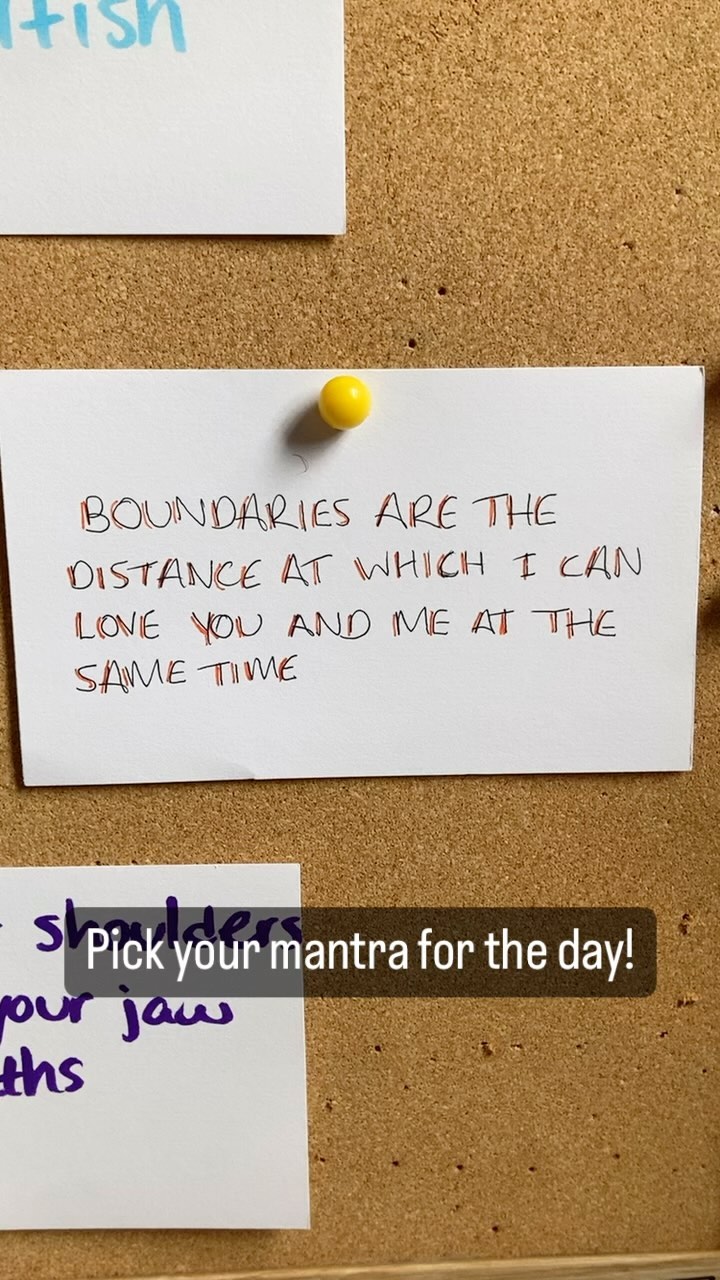 BOUNDARIES ARE THE
DISTANCE AT WHICH I CAN
LOVE YOU AND ME AT THE
SAME TIME
shoulders
Pick your mantra for the day!
your jaw